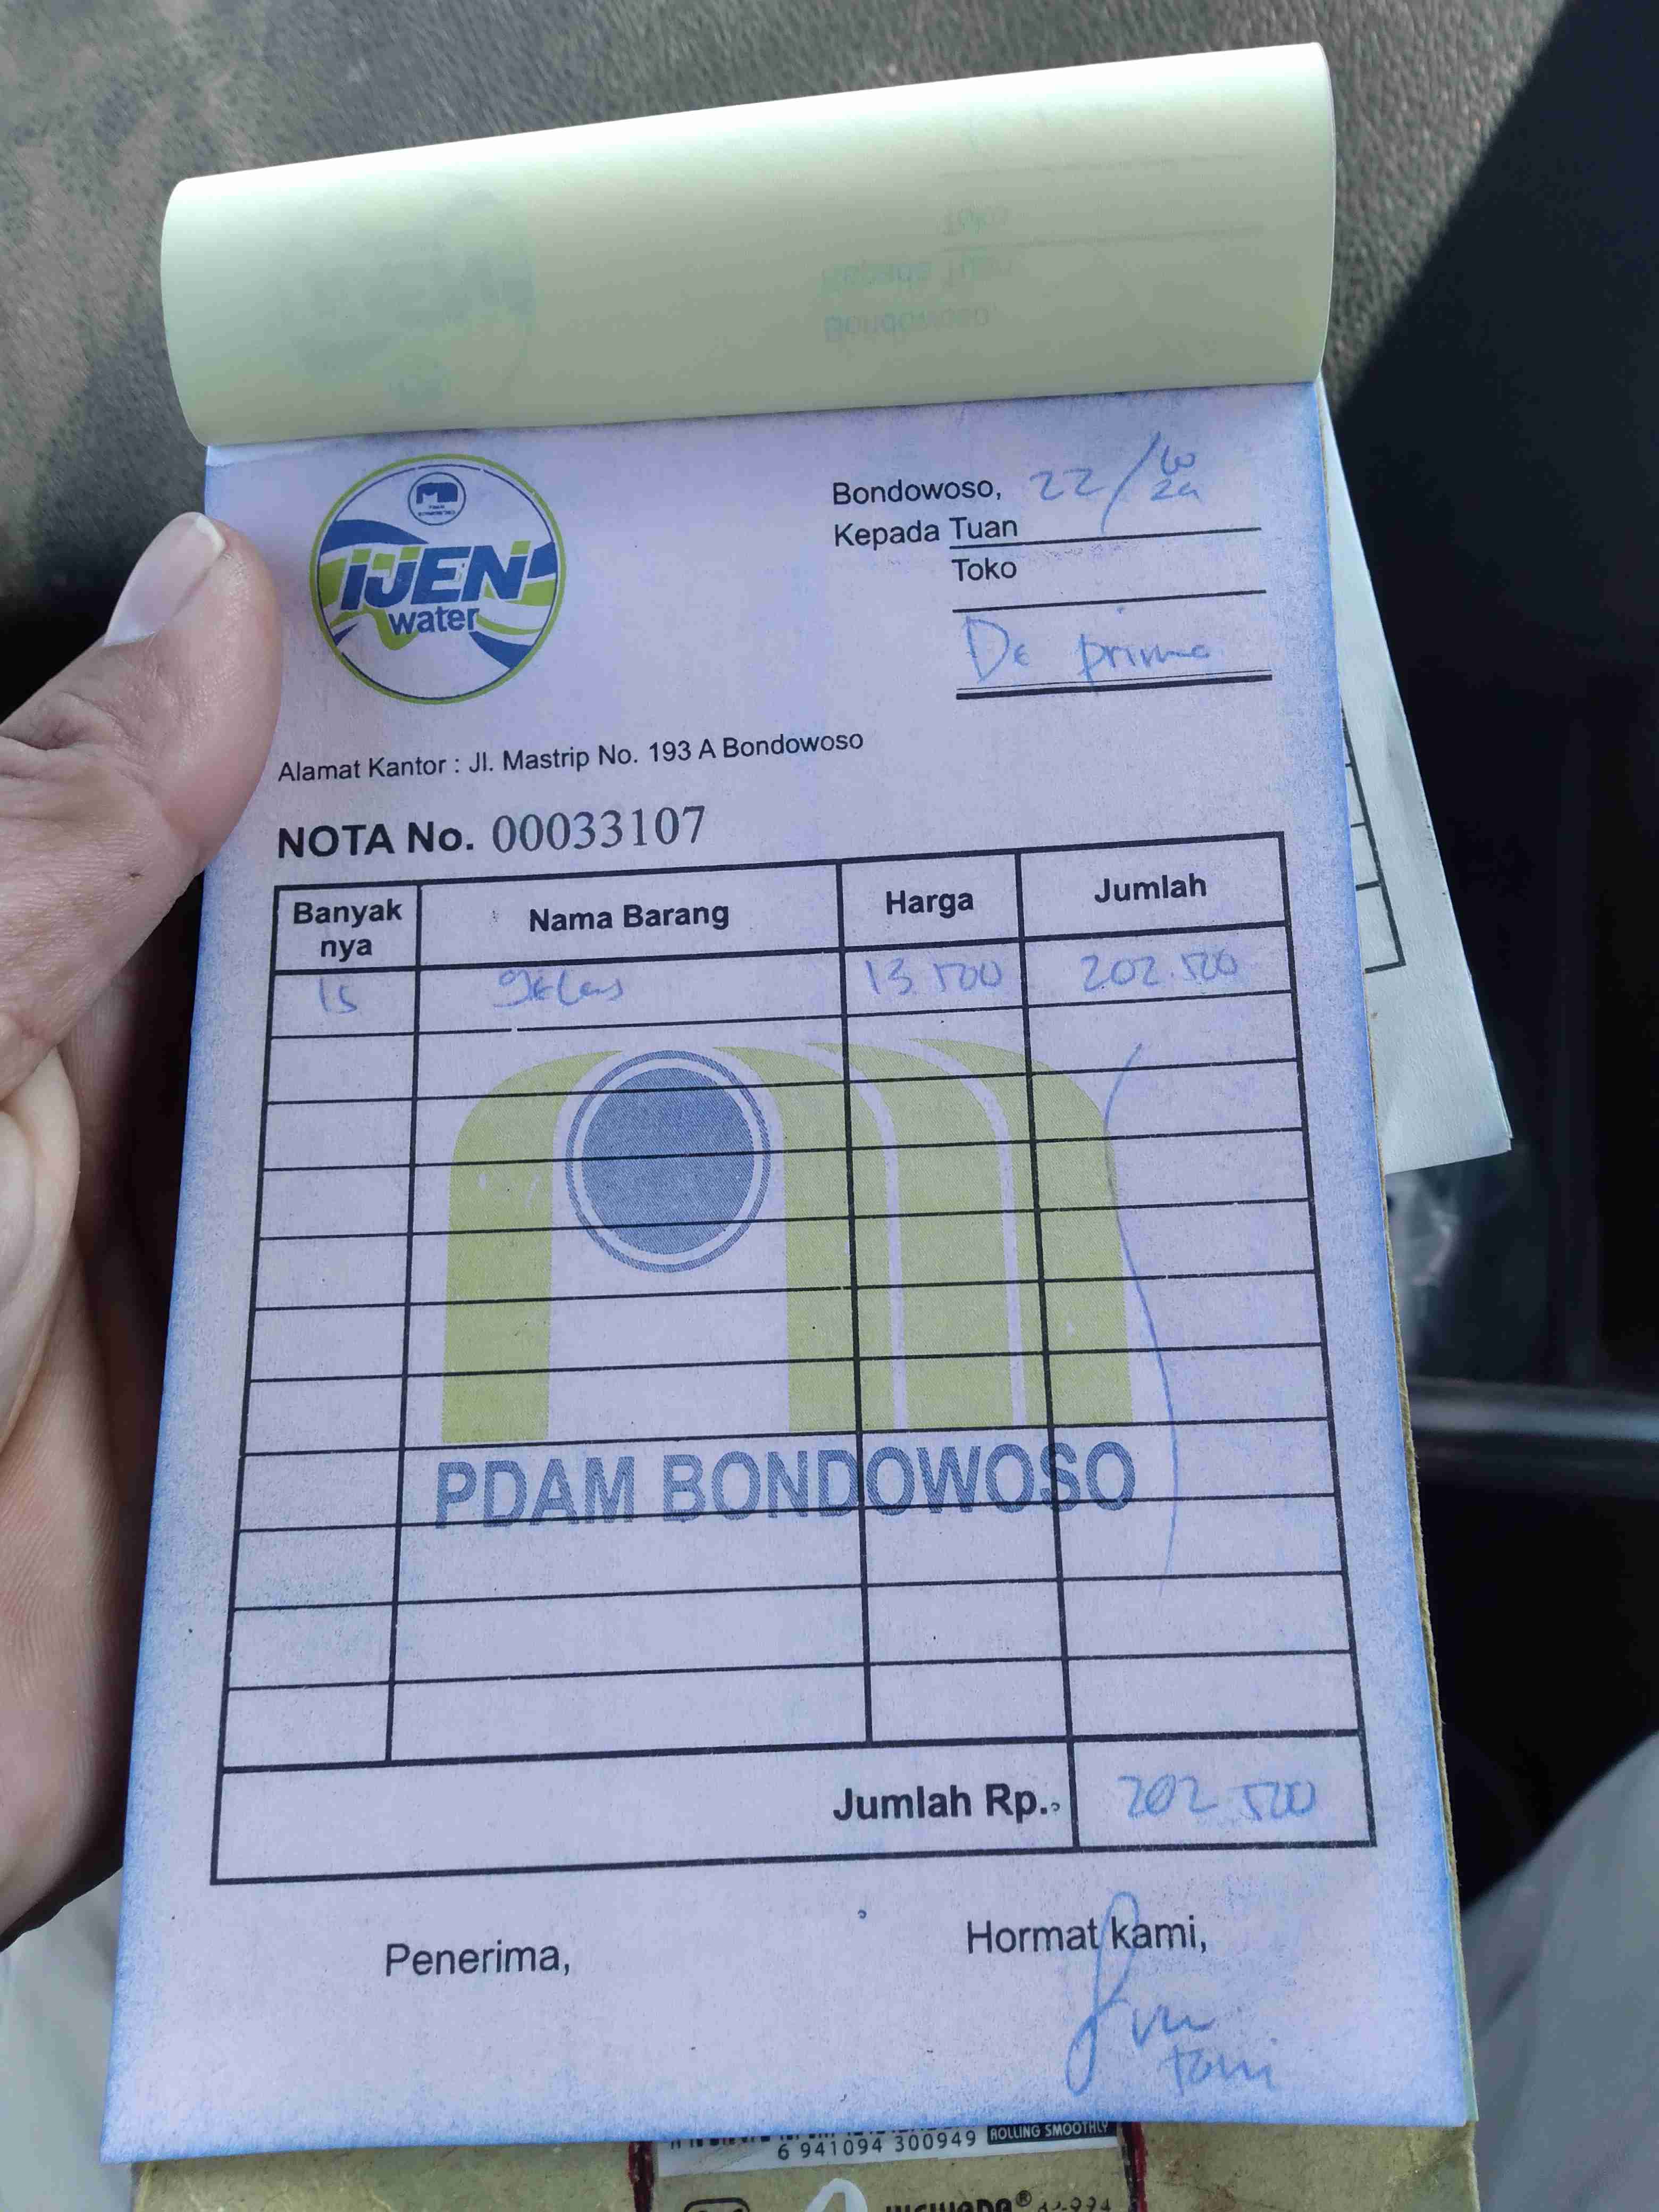 IJEN
water
Bondowoso, 22/
Kepada Tuan
Toko
De prima
Alamat Kantor : Jl. Mastrip No. 193 A Bondowoso
NOTA No. 00033107
Banyak nya Nama Barang Harga Jumlah
15 gelas 13.500 202.500
PDAM BONDOWOSO
Jumlah Rp. 202.500
Penerima,
Hormat kami,
tomi
6 941094 300949 ROLLING SMOOTHLY